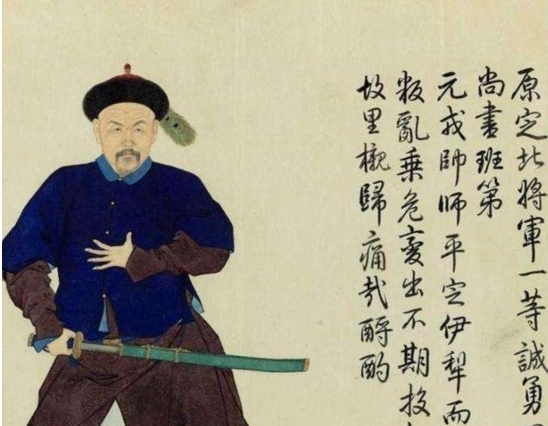 原定北將軍一等誠勇
尚書班第
元戎帥師平定伊犁而
叛亂乗危變出不期投
故里櫬歸痛哉酹酌